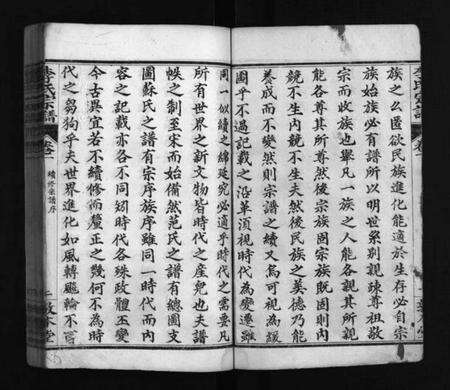 族之公區欲民族進化能適於生存必自宗
族始族必有譜所以明世系別親疎尊祖敬
宗而收族也舉凡一族之人能各親其所親
能各尊其所尊然後宗族固宗族既固則內
競不生內競不生夫然後民族之美德乃能
養成而不變然則宗譜之續又烏可視為緩
圖乎不過記載之沿革須視時代為變遷雖
同一似續之綿延究必適乎時代之需要凡
所有世界之新文物皆時代之產兒也夫譜
帙之制至宋而始備然范氏之譜有總圖支
圖蘇氏之譜有宗序族序雖同一時代而內
容之記載亦各不同矧時代各殊政體丕變
今古異宜若不續修而釐正之幾何不為時
代之芻狗乎夫世界進化如風轉飈輪不可
李氏宗譜 卷一 續修宗譜序 二 敦本堂